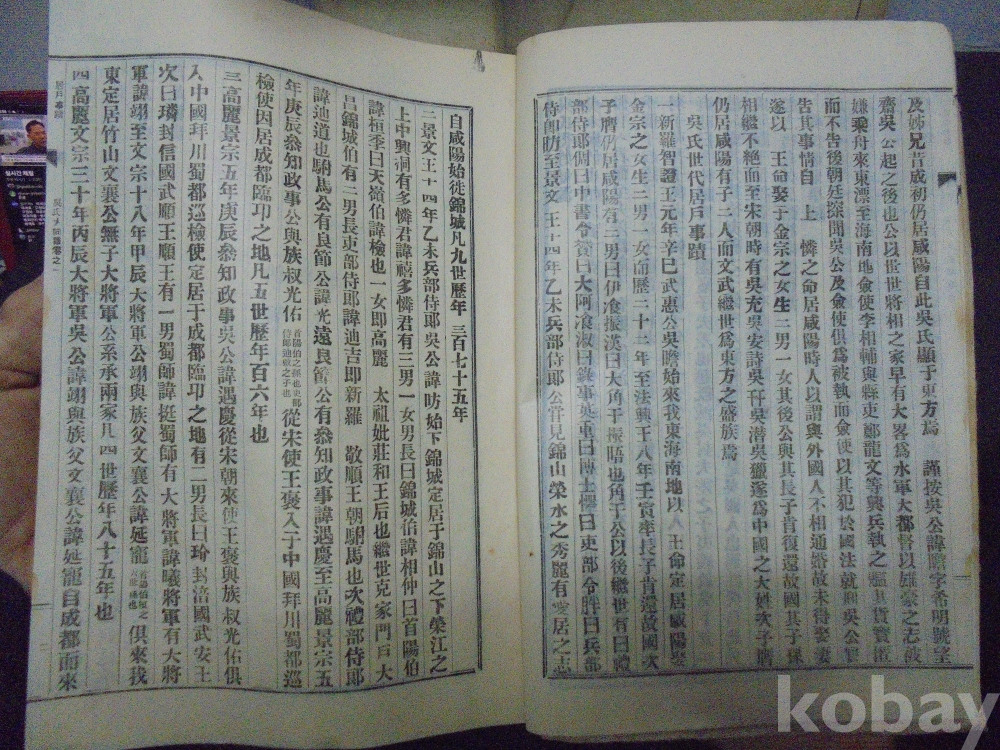 及姊兄昔咸初仍居咸陽自此吳氏顯于東方焉 謹按吳公諱瞻字希明號望
齋吳公起之後也公以世世將相之家早有大畧為水軍大都督以雄豪之志被
嫌乘舟來東漂至海南地僉使李相輔與縣吏鄭龍文等與兵執之
而不告後朝廷探聞吳公及僉使俱為被執而僉使以其犯於國法就 吳公官
告其事情自 上 憐之命居咸陽時人以謂與外國人不相通婚故未待娶妻
遂以 王命娶于金宗之女生二男一女其後公與其長子肯復還故國其子
仍居咸陽有子 人而文武繼世為東方之盛族焉
相繼不絕而至宋朝時有吳充吳安詩吳 吳潜吳獵遂為中國之大姓次子膺
吳氏世代居戶事蹟
一新羅智證王元年辛巳武惠公吳瞻始來我東海南地以 王命定居咸陽娶
金宗之女生二男 女而歷二十二年至法興王八年壬寅率長子肯還故國次
子膺仍居咸陽有二男曰伊飡振漢曰大角干 晤也角干公以後繼世有曰禮
部侍郎 曰中書令 曰大阿飡淑曰錄事英重曰博士 曰吏部令 曰兵部
侍郎昉至景文王十四年乙未兵部侍郎公嘗見錦山榮水之秀麗有 居之志
自咸陽始徙錦城凡九世歷年 三百七十五年
二景文王十四年乙未兵部侍郎吳公諱昉始下錦城定居于錦山之下榮江之
上中興洞有多憐君諱禧多憐君有三男一女男長曰錦城伯諱相仲曰首陽伯
諱桓季曰天嶺伯諱檢也一女即高麗 太祖妣莊和王后也繼世克家門戶大
昌錦城伯有二男長吏部侍郎諱迪吉即新羅 敬順王朝駙馬也次禮部侍郎
諱迪道也駙馬公有良節公諱光遠良節公有叅知政事諱遇慶至高麗景宗五
年庚辰叅知政事公與族叔光佑 首陽伯之孫也吏部侍郎迪 之子也 從宋使王褒入于中國拜川蜀都巡
檢使因居成都臨卬之地凡五世歷年百六年也
三高麗景宗五年庚辰叅知政事吳公諱遇慶從宋朝來使王褒與族叔光佑俱
入中國拜川蜀都巡檢使定居于成都臨卬之地有二男長曰玲封涪國武安王
次曰璘封信國武順王順王有一男蜀師諱挺蜀師有大將軍諱曦將軍有大將
軍諱翊至文宗十八年甲辰大將軍公翊與族父文襄公諱延寵 俱來我
東定居竹山文襄公無子大將軍公系承兩家凡四世歷年八十五年也
四高麗文宗三十年丙辰大將軍吳公諱翊與族父文襄公諱延寵自成都而來
kobay